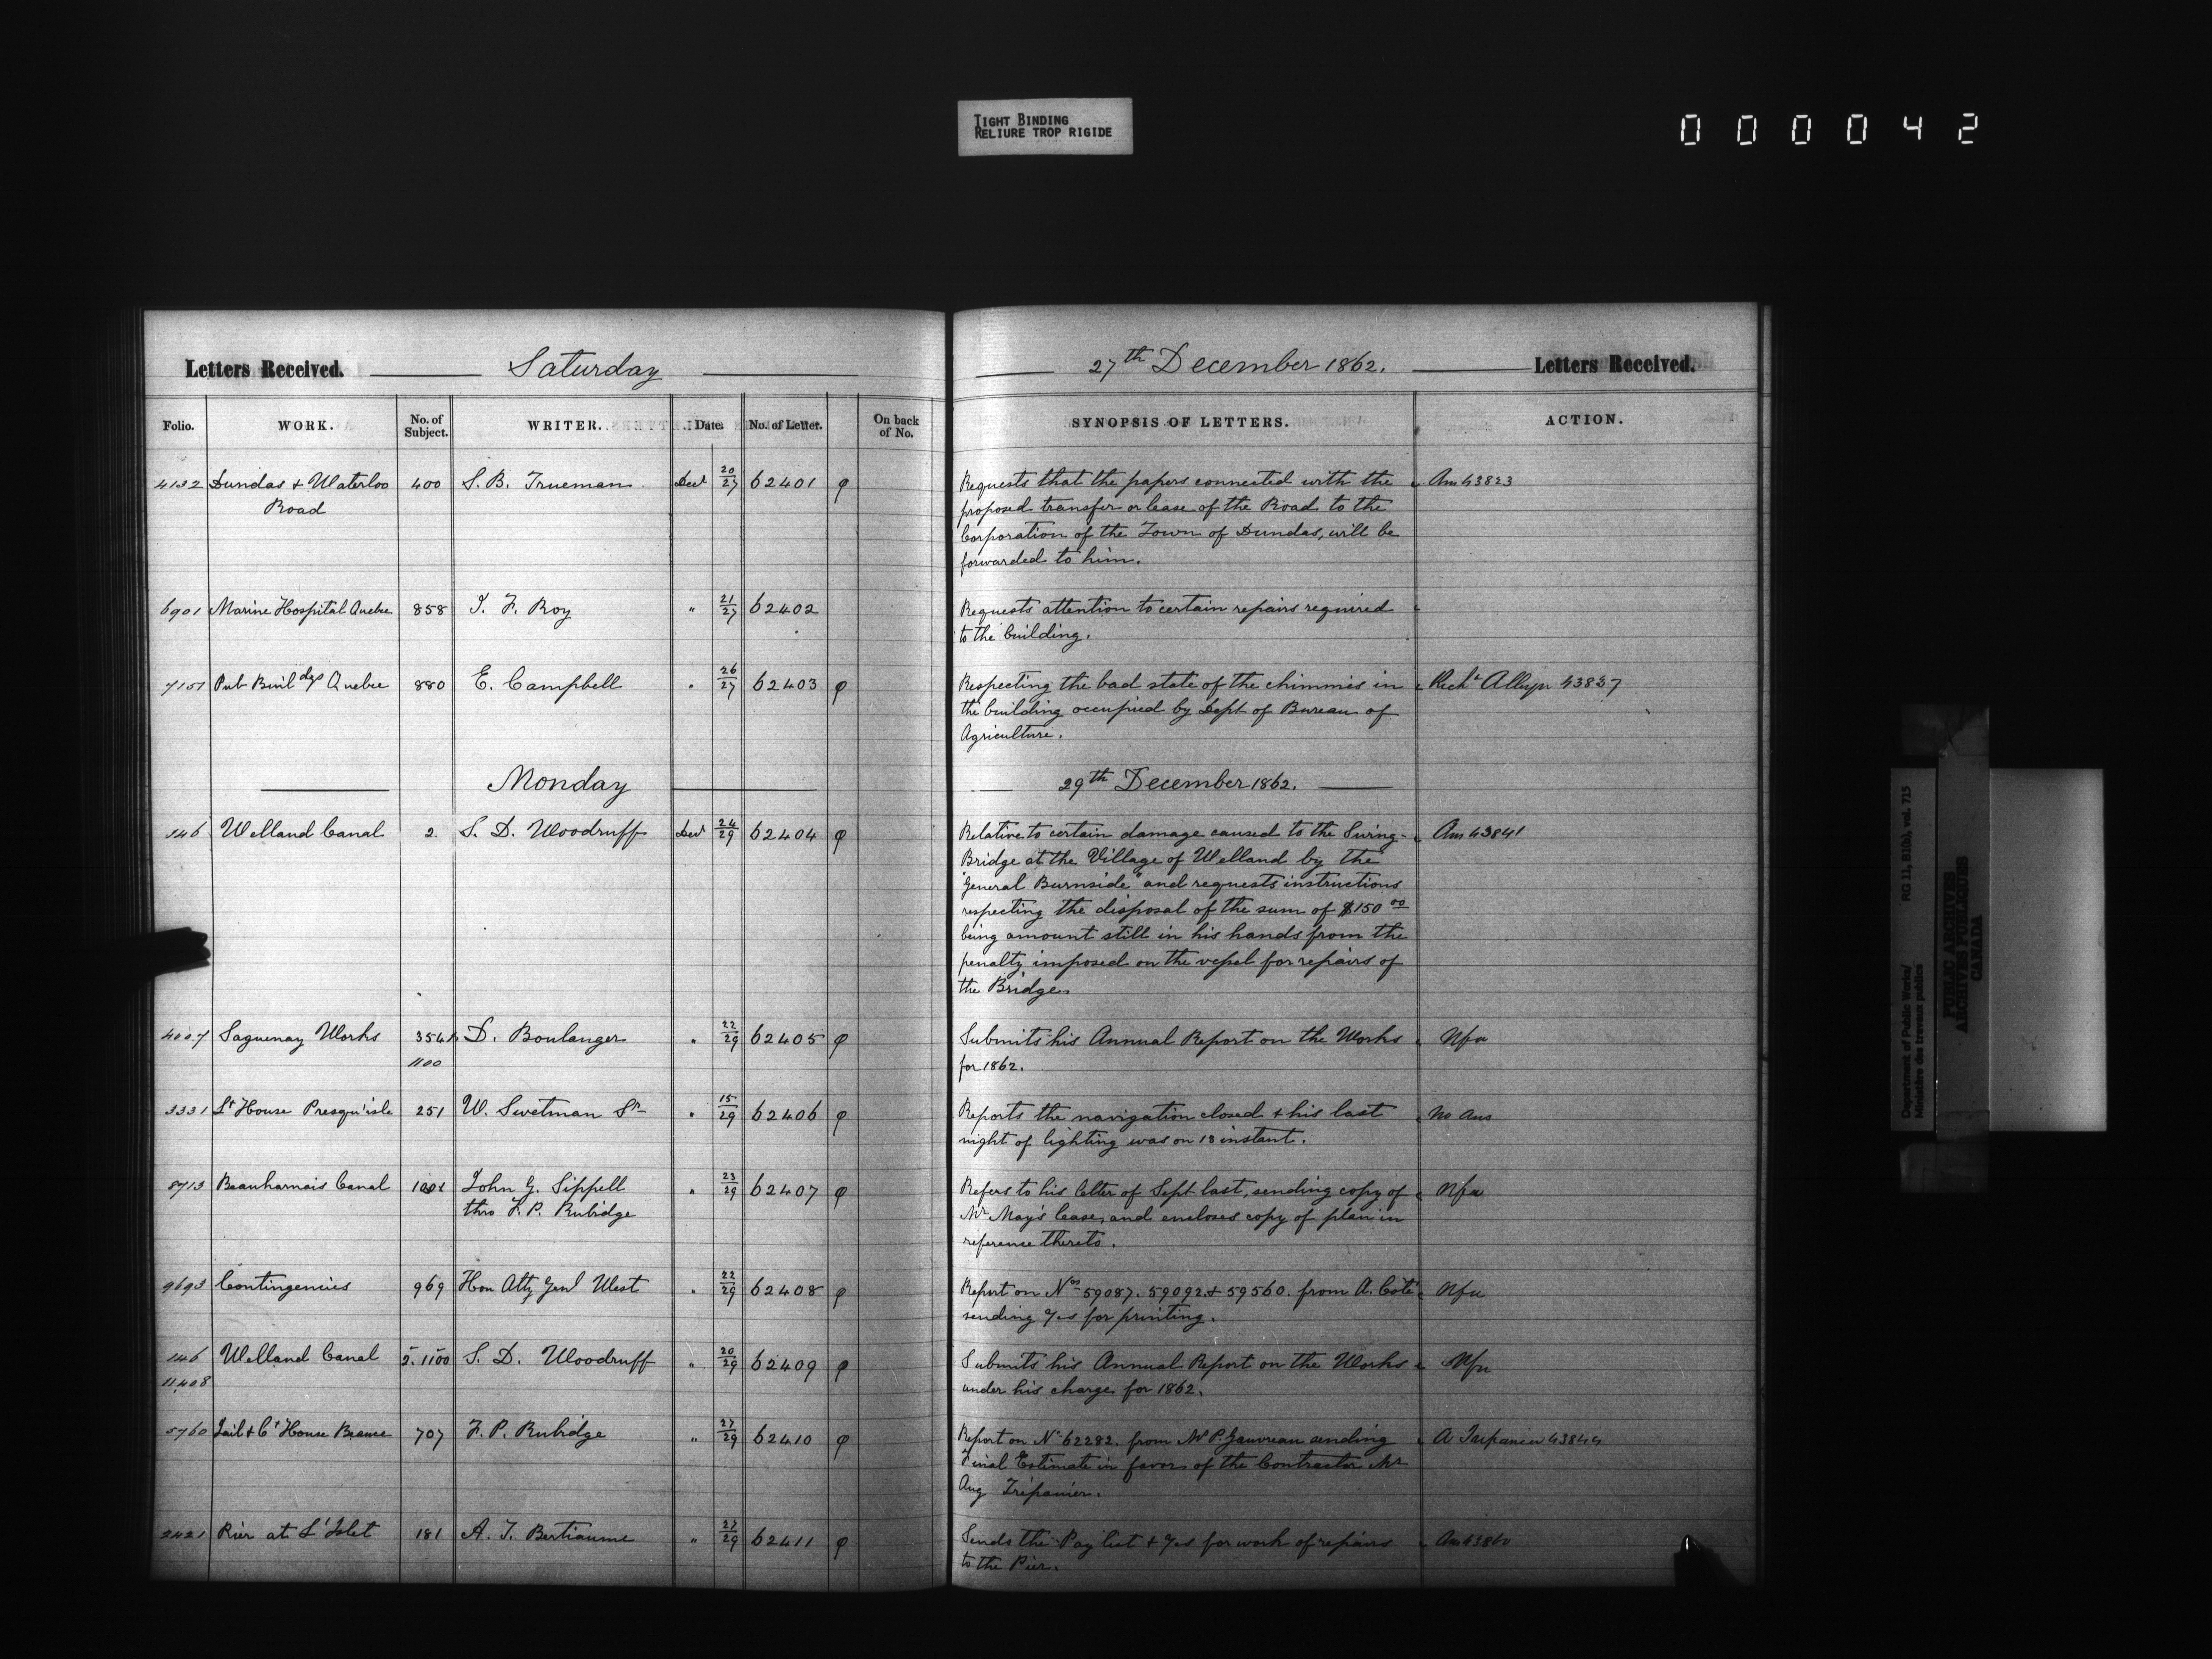 TIGHT BINDING
RELIURE TROP RIGIDE
000042
Letters Received. Saturday 27th December 1862. Letters Received.
Folio. WORK. No. of Subject. WRITER. Date. No. of Letter. On back of No. SYNOPSIS OF LETTERS. ACTION.
4132 Dundas & Waterloo 400 S. B. Trueman Decr 20/27 62401 φ Requests that the papers connected with the Ans 43823
Road proposed transfer or lease of the Road to the
Corporation of the Town of Dundas, will be
forwarded to him.
6901 Marine Hospital Quebec 858 J. F. Roy " 21/27 62402 Requests attention to certain repairs required
to the building.
7151 Pub Buildgs Quebec 880 E. Campbell " 26/27 62403 φ Respecting the bad state of the chimnies in Richd Alleyn 43837
the building occupied by Dept of Bureau of
Agriculture.
Monday 29th December 1862.
146 Welland Canal 2. S. D. Woodruff Decr 24/29 62404 φ Relative to certain damage caused to the Swing- Ans 43841
Bridge at the Village of Welland by the
"General Burnside" and requests instructions
respecting the disposal of the sum of $150 00
being amount still in his hands from the
penalty imposed on the vessel for repairs of
the Bridge.
4007 Saguenay Works 354½ D. Boulanger " 22/29 62405 φ Submits his Annual Report on the Works Nfa
1100 for 1862.
3331 Lt House Presqu'isle 251 W. Swetman Sr " 15/29 62406 φ Reports the navigation closed & his last No Ans
night of lighting was on 13 instant.
8713 Beauharnois Canal John G. Sippell " 23/29 62407 φ Refers to his letter of Sept last, sending copy of Nfa
thro F. P. Rubidge Mr May's lease, and encloses copy of plan in
reference thereto.
9693 Contingencies 969 Hon Atty Genl West " 22/29 62408 φ Report on Nos 59087. 59092. & 59560. from A. Coté Nfa
sending for printing.
146 Welland Canal 2. 1100 S. D. Woodruff " 20/29 62409 φ Submits his Annual Report on the Works Nfa
11,408 under his charge for 1862.
5760 Jail & Ct House Beauce 707 F. P. Rubidge " 27/29 62410 φ Report on No 62282. from Mr P. Gauvreau sending A Trepanier 43844
Final Estimate in favor of the Contractor Mr
Aug Trépanier.
2421 Pier at L'Islet 181 A. T. Bertiaume " 27/29 62411 φ Sends the Pay list & for work of repairs Ans
to the Pier.
Department of Public Works/ RG 11, B1(b), vol. 715
Ministère des travaux publics
PUBLIC ARCHIVES
ARCHIVES PUBLIQUES
CANADA